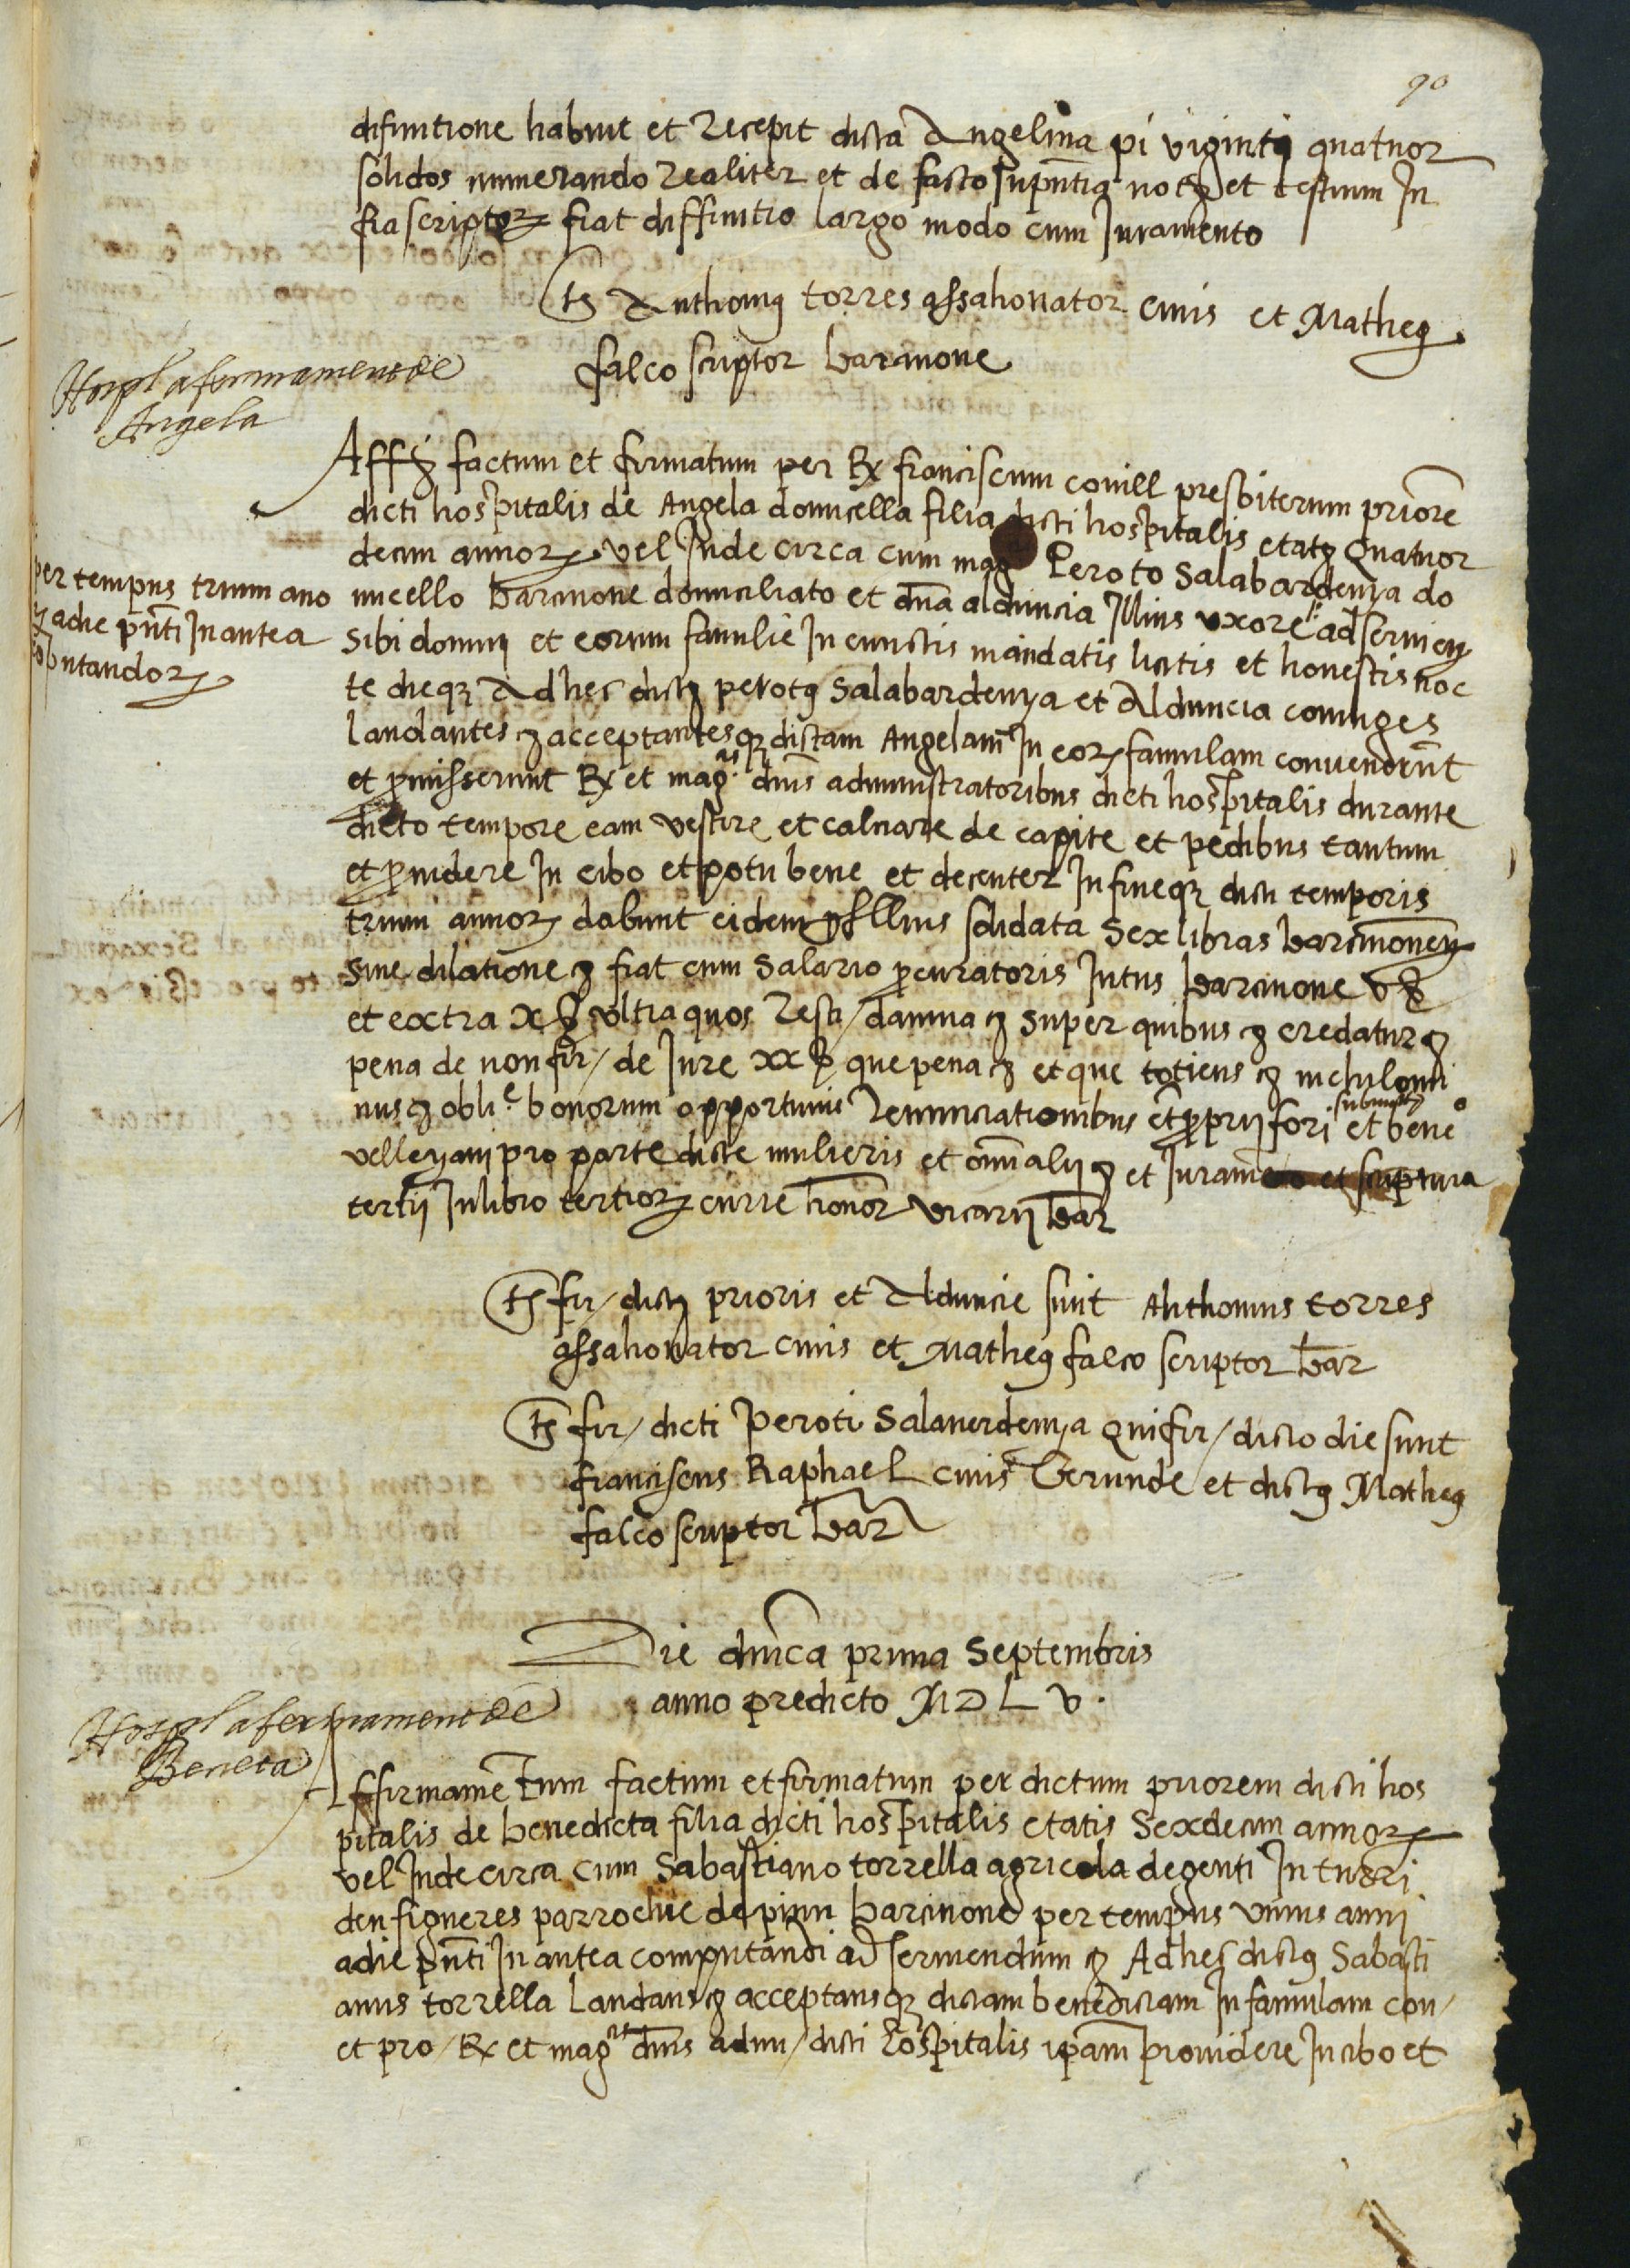 90
difinitione habuit et recepit dicta Angelina pi viginti quatuor
solidos numerando realiter et de facto in pñtia not et testium In
fra scriptoꝝ fiat diffinitio largo modo cum Juramento
ts Anthonius torres assahonator civis et Matheus
falco scriptor barcinone
Hospl afermament de
Angela
Aff factum et firmatum per R franciscum conill presbiterum priorē
dicti hospitalis de Angela domicella filia dicti hospitalis etatis Quatuor
decim annoꝝ vel Inde circa cum mag Peroto Salabardenya do
per tempus trium ano
ꝝ a die pñti In antea
putandoꝝ
micello barcinone domiciliato et dña alduncia Illius uxore ad servien
sibi domui et eorum familie In cunctis mandatis licitis et honestis noc
te dieqꝫ Ad hec dictus perotus Salabardenya et Alduncia coniuges
laudantes ꝛ acceptantesqꝫ dictam Angelam In eoꝝ famulam convenerūt
et promisserunt R et magcis dñis administratoribus dicti hospitalis durante
dicto tempore eam vestire et calciare de capite et pedibus tantum
et providere In cibo et potu bene et decenter In fineqꝫ dicti temporis
trium annoꝝ dabunt eidem pro Illius solidata Sex libras barcinonen
sine dilatione ꝛ fiat cum Salario procuratoris Intus barcinone v s
et extra x s ultra quos resti/ damna ꝛ super quibus ꝛ credatur ꝛ
pena de non fir/ de Jure xx s que pena ꝛ et que totiens ꝛ nichilomi
nus ꝛ obli.e bonorum opportunis renunciationibus et proprii fori submissi et bene
velleyani pro parte dicte mulieris et omni alii ꝛ et Juramento et scriptura
tertii In libro tertioꝝ curie honor vicarii bar
ts fir/ dictoꝝ prioris et Alduncie sunt Anthonius torres
assahonator civis et Matheus falco scriptor bar
ts fir/ dicti Peroti Salaverdenya Qui fir/ dicto die sunt
franciscus Raphael civis Gerunde et dictus Matheus
falco scriptor bar
Die dñica prima Septembris
anno predicto MDLV.
Hospl afermament de
Beneta
Affirmamentum factum et firmatum per dictum priorem dicti hos
pitalis de benedicta filia dicti hospitalis etatis Sexdecim annoꝝ
vel Inde circa cum Sabastiano torrella agricola degenti In turri
den figueres parrochie de pinu barcinone per tempus unius anni
a die pñti In antea computandi ad serviendum ꝛ Ad hec dictus Sabasti
anus torrella laudans ꝛ acceptansqꝫ dictam benedictam In famulam con/
et pro/ R et magcis dñis admi/ dicti hospitalis ipam providere In cibo et